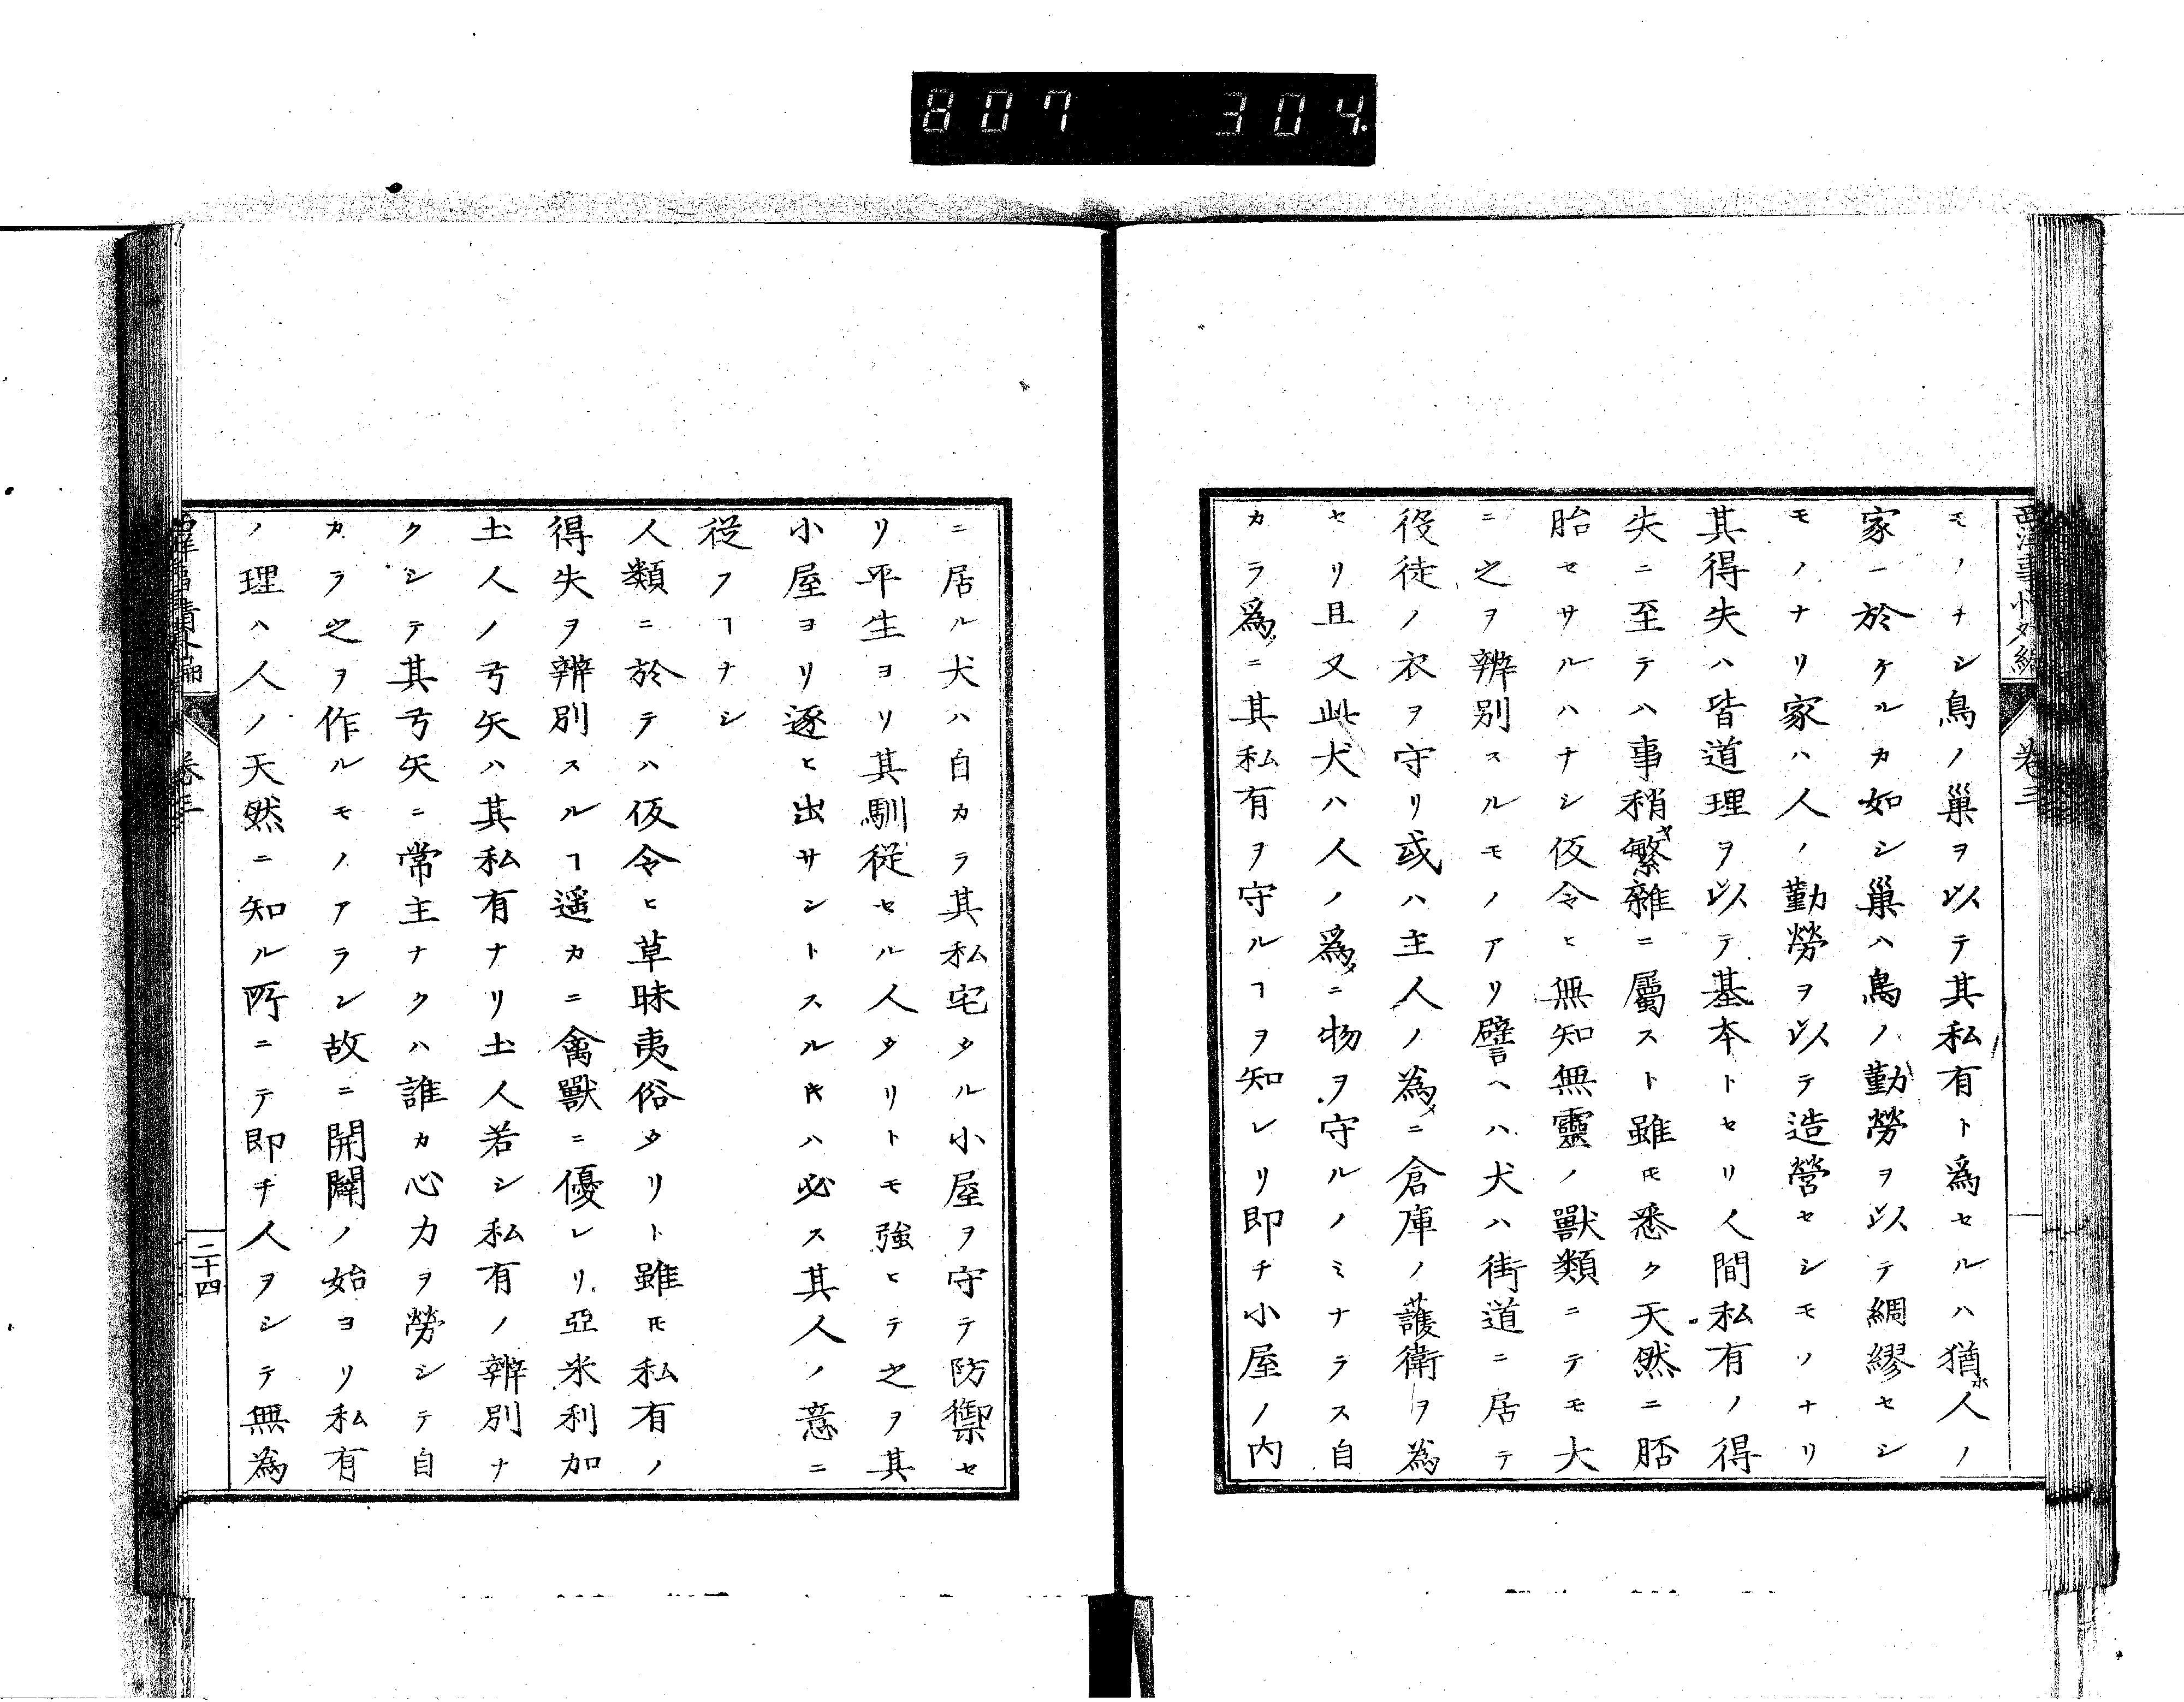 807 304.
西洋事情外編 卷三
モノナシ鳥ノ巢ヲ以テ其私有ト爲セルハ猶人ノ
家ニ於ケルカ如シ巢ハ鳥ノ勤勞ヲ以テ綢繆セシ
モノナリ家ハ人ノ勤勞ヲ以テ造營セシモノナリ
其得失ハ皆道理ヲ以テ基本トセリ人間私有ノ得
失ニ至テハ事稍繁雜ニ屬スト雖𪜈悉ク天然ニ胚
胎セサルハナシ仮令ヒ無知無靈ノ獸類ニテモ大
ニ之ヲ辨別スルモノアリ譬ヘハ犬ハ街道ニ居テ
役徒ノ衣ヲ守リ或ハ主人ノ為メニ倉庫ノ護衛ヲ為
セリ且又此犬ハ人ノ爲メニ物ヲ守ルノミナラス自
カラ爲メニ其私有ヲ守ルヿヲ知レリ即チ小屋ノ内
ニ居ル犬ハ自カラ其私宅タル小屋ヲ守テ防禦セ
リ平生ヨリ其馴從セル人タリトモ強ヒテ之ヲ其
小屋ヨリ逐ヒ出サントスル𪜈ハ必ス其人ノ意ニ
從フヿナシ
人類ニ於テハ仮令ヒ草昧夷俗タリト雖𪜈私有ノ
得失ヲ辨別スルヿ遥カニ禽獸ニ優レリ亞米利加
土人ノ弓矢ハ其私有ナリ土人若シ私有ノ辨別ナ
クシテ其弓矢ニ常主ナクハ誰カ心力ヲ勞シテ自
カラ之ヲ作ルモノアラン故ニ開闢ノ始ヨリ私有
ノ理ハ人ノ天然ニ知ル所ニテ即チ人ヲシテ無為
西洋事情外編 卷三 二十四